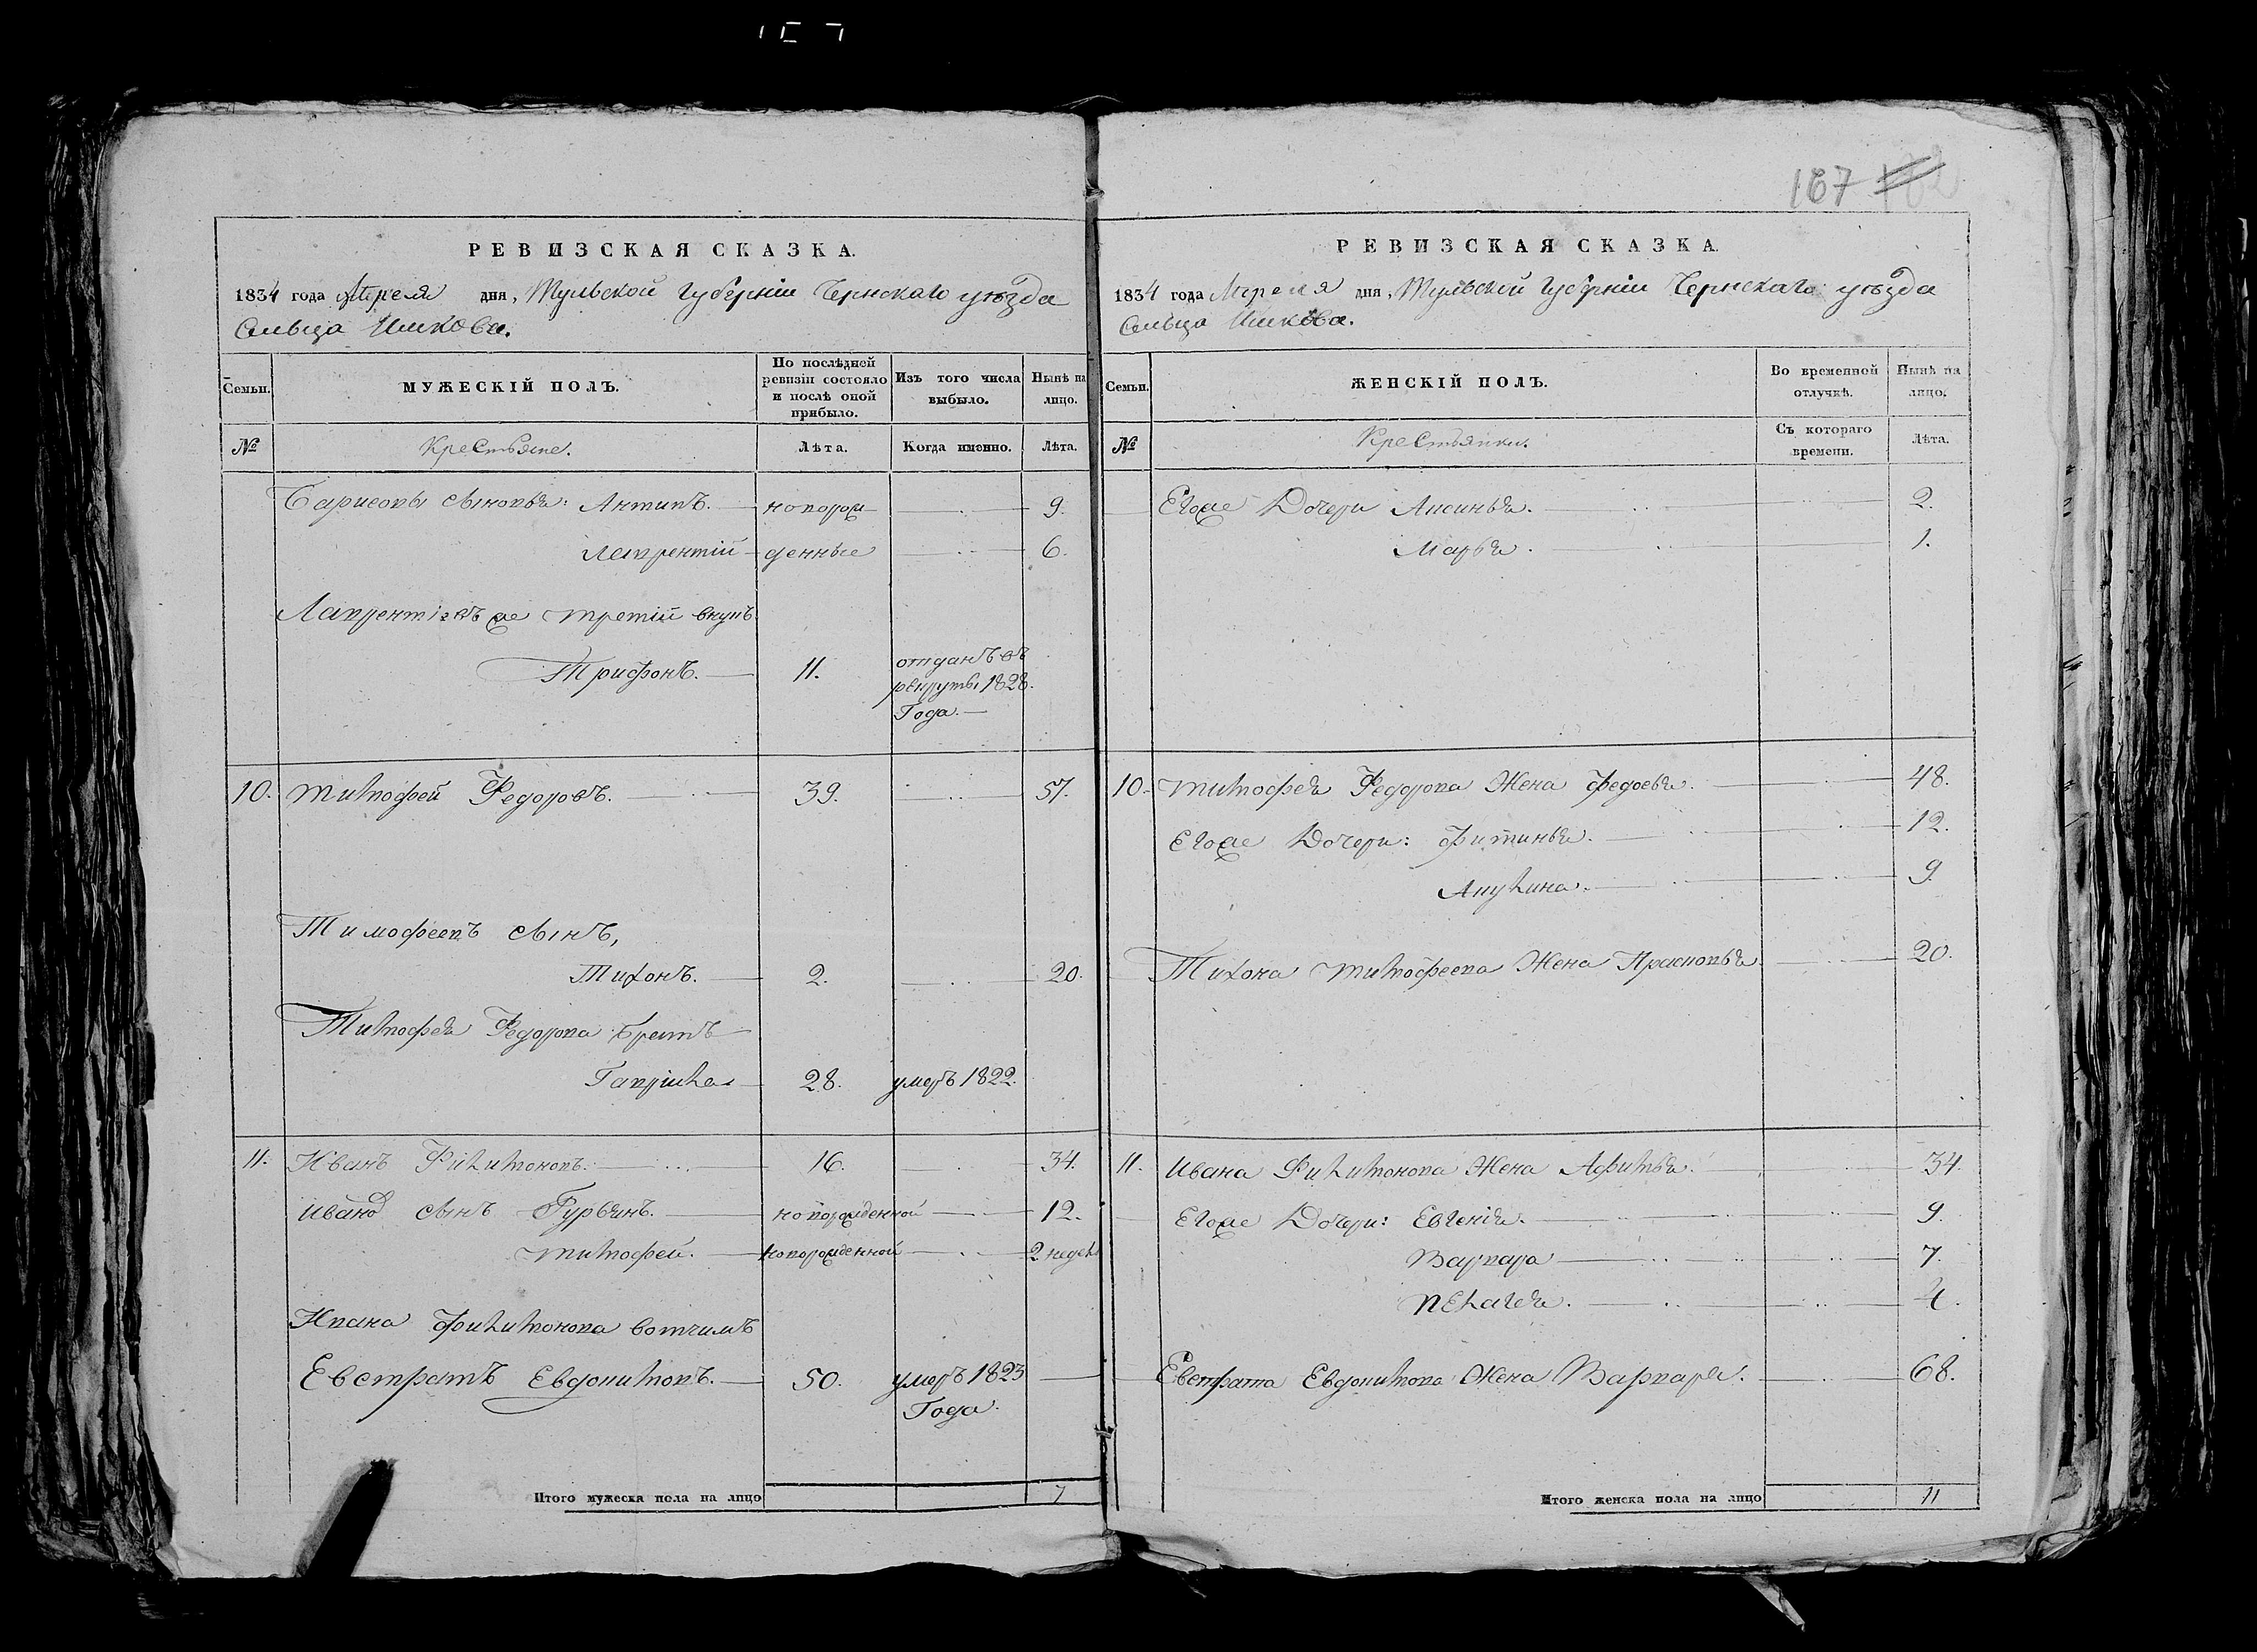 167 162
РЕВИЗСКАЯ СКАЗКА.
1834 года Апреля дня, Тульской губерніи Чернскаго уѣзда
Сельца Шикова.
Семьи. МУЖЕСКІЙ ПОЛЪ. По послѣдней ревизіи состояло и послѣ оной прибыло. Изъ того числа выбыло. Нынѣ на лицо.
№ Крестьяне. Лѣта. Когда именно. Лѣта.
Барисовы сыновья: Антипъ. новорож 9.
Лаврентій денные 6.
Лаврентіевъ же третій внукъ
Трифонъ. 11. отданъ въ
рекруты 1828.
Года.
10. Тимофей Федоровъ. 39. 57.
Тимофеевъ сынъ,
Тихонъ. 2. 20.
Тимофея Федорова братъ
Гаврила 28. умеръ 1822.
11. Иванъ Филимоновъ. 16. 34.
Иванов сынъ Гурьянъ. новорожденной 12.
Тимофей. новорожденной 2 недел
Ивана Филимонова вотчимъ
Евстратъ Евдокимовъ. 50. умеръ 1823
Года.
Итого мужеска пола на лицо 7
РЕВИЗСКАЯ СКАЗКА.
1834 года Апреля дня, Тульской губерніи Чернскаго уѣзда
Сельца Шикова.
Семьи. ЖЕНСКІЙ ПОЛЪ. Во временной отлучкѣ. Нынѣ на лицо.
№ Крестьянки. Съ котораго времени. Лѣта.
Егоже Дочери Аксинья. 2.
Марья. 1.
10. Тимофея Федорова Жена Федосья. 48.
Егоже Дочери: Фитинья. 12.
Акулина. 9.
Тихона Тимофеева Жена Прасковья. 20.
11. Ивана Филимонова Жена Афимья. 34.
Егоже Дочери: Евгенія. 9.
Варвара 7.
Пелагея. 4.
Евстрата Евдокимова Жена Варвара. 68.
Итого женска пола на лицо 11